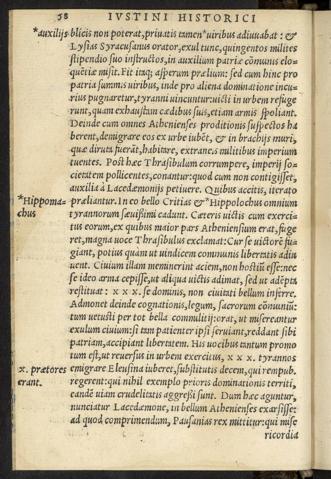 58 IVSTINI HISTORICI
*auxilijs blicis non poterat, priuatis tamen *uiribus adiuuabat : &
Lysias Syracusanus orator, exul tunc, quingentos milites
stipendio suo instructos, in auxilium patriæ cōmunis elo-
quētiæ misit. Fit itaq; asperum prælium: sed cum hinc pro
patria summis uiribus, inde pro aliena dominatione incu-
rius pugnaretur, tyranni uincuntur: uicti in urbem refuge
runt, quam exhaustam cædibus suis, etiam armis spoliant.
Deinde cum omnes Athenienses proditionis suspectos ha
berent, demigrare eos ex urbe iubēt, & in brachijs muri,
quæ diruta fuerāt, habitare, extraneis militibus imperium
tuentes. Post hæc Thrasibulum corrumpere, imperij so-
cietatem pollicentes, conantur: quod cum non contigisset,
auxilia à Lacedæmonijs petiuere. Quibus accitis, iterato
*Hippoma- præliantur. In eo bello Critias & *Hippolochus omnium
chus tyrannorum sæuissimi cadunt. Cæteris uictis cum exerci-
tus eorum, ex quibus maior pars Atheniensium erat, fuge
ret, magna uoce Thrasibulus exclamat: Cur se uictorē fu-
giant, potius quàm ut uindicem communis libertatis adiu
uent. Ciuium illam meminerint aciem, non hostiū esse: nec
se ideo arma cepisse, ut aliqua uictis adimat, sed ut adēpta
restituat : x x x. se dominis, non ciuitati bellum inferre.
Admonet deinde cognationis, legum, sacrorum cōmuniū:
tum uetusti per tot bella commilitij: orat, ut misereantur
exulum ciuium: si tam patienter ipsi seruiant, reddant sibi
patriam, accipiant libertatem. His uocibus tantum promo
tum est, ut reuersus in urbem exercitus, x x x. tyrannos
x. prætores emigrare Eleusina iuberet, substitutis decem, qui rempub.
erant. regerent: qui nihil exemplo prioris dominationis territi,
eandē uiam crudelitatis aggressi sunt. Dum hæc aguntur,
nunciatur Lacedæmone, in bellum Athenienses exarsisse:
ad quod comprimendum, Pausanias rex mittitur: qui mise
ricordia